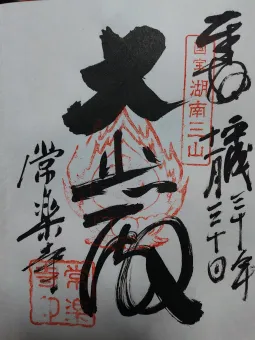 奉拝
平成三十年
十一月二十日
国宝湖南三山
大悲殿
常楽寺
常楽
寺印